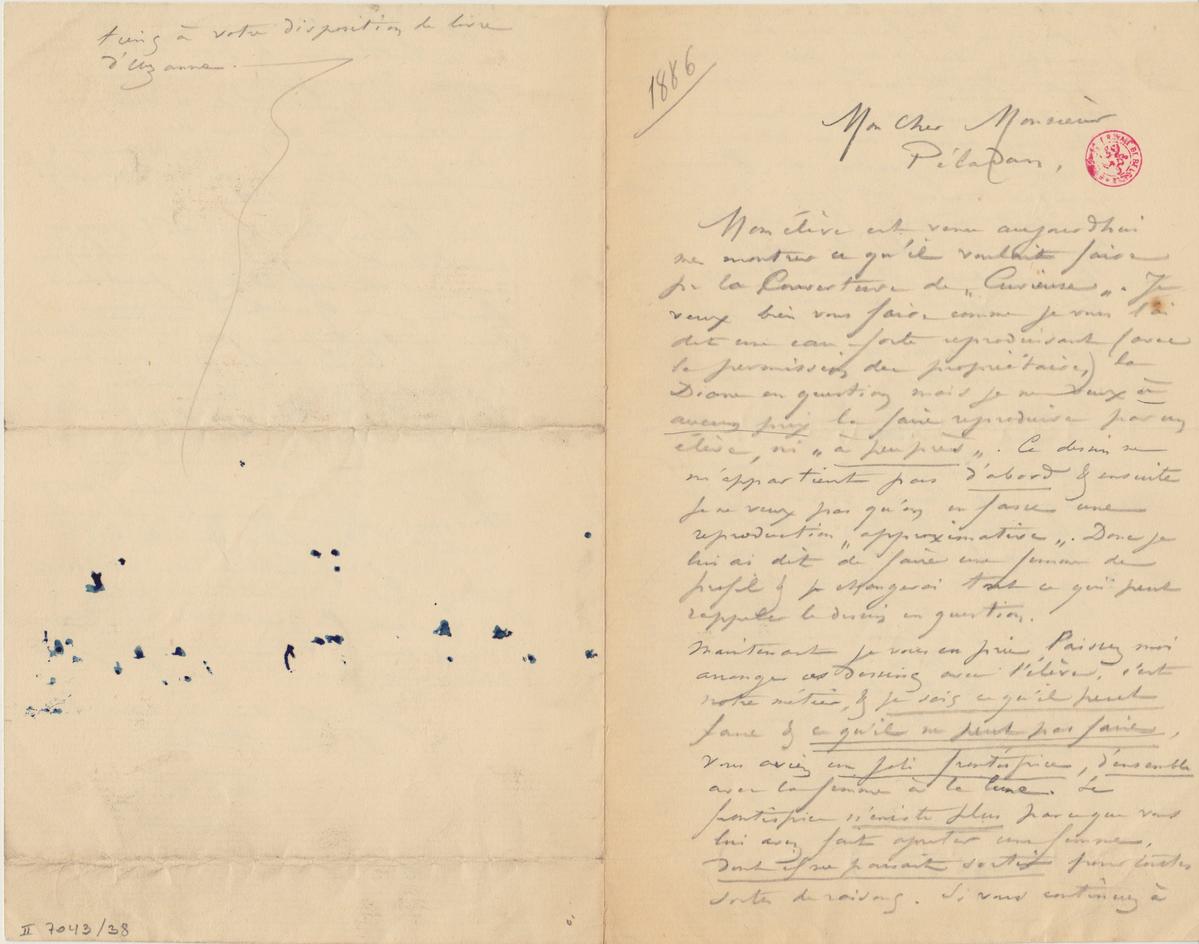 tiens à votre disposition le livre
d'Uzanne.
1886
Mon cher Monsieur
Péladan,
Mon élève est venu aujourd'hui
me montrer ce qu'il voulait faire
pr la Couverture de „Curieuse„. Je
veux bien vous faire comme je vous l'ai
dit une eau-forte reproduisant (avec
la permission du propriétaire,) la
Diane en question mais je ne veux à
aucun prix la faire reproduire par un
élève, ni „à peu près„. Ce dessin ne
m'appartient pas d'abord & ensuite
je ne veux pas qu'on en fasse une
reproduction „approximative„. Donc je
lui ai dit de faire une femme de
profil & je changerai tout ce qui peut
rappeler le dessin en question.
Maintenant je vous en prie laissez moi
arranger ces dessins avec l'élève, c'est
notre métier, & je sais ce qu'il peut
faire & ce qu'il ne peut pas faire,
vous aviez un joli frontispice, d'ensemble
avec la femme à la lune. Le
frontispice n'existe plus parce que vous
lui avez fait ajouter une femme,
dont il ne pouvait sortir pour toutes
sortes de raisons. Si vous continuez à
II 7043/38